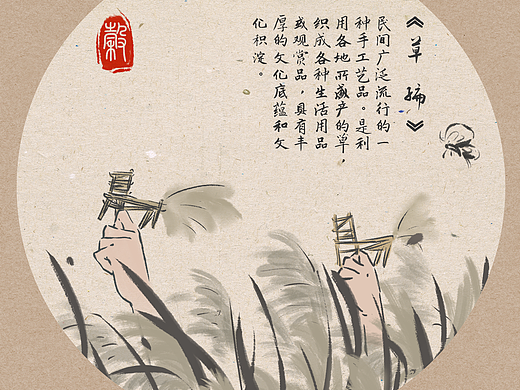 《草编》
民间广泛流行的一
种手工艺品。是利
用各地所盛产的草，
织成各种生活用品
或观赏品，具有丰
厚的文化底蕴和文
化积淀。